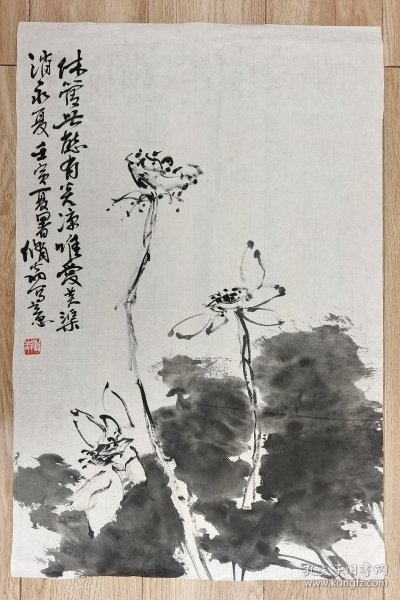 休管世态有炎凉唯爱芙渠
消永夏壬寅夏暑
写意
孔夫子旧书网
www.kongfz.com